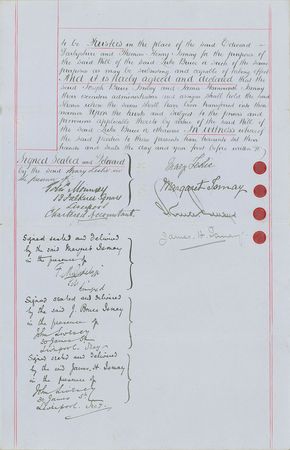 to be Trustees in the place of the said Edward
Dalglishe and Thomas Henry Ismay for the purposes
of the said Will of the said Luke Bruce or such of the same
purposes as may be subsisting and capable of taking effect
And it is hereby agreed and declared that the
said Joseph Bruce Ismay and James Hainsworth Ismay
their executors administrators and assigns shall hold the said
Shares when the same shall have been transferred into their
names Upon the trusts and subject to the powers and
provisions applicable thereto by virtue of the said Will of
the said Luke Bruce or otherwise In witness whereof
the said parties to these presents have hereunto set their
hands and seals the day and year first before written
Signed Sealed and Delivered
by the said Leslie in
the presence of
Liverpool
Chartered Accountant
Leslie
Margaret Ismay
James H. Ismay
Signed sealed and delivered
by the said Margaret Ismay
in the presence of
Signed sealed and delivered
by the said J. Bruce Ismay
in the presence of
John Livesey
30 James St
Liverpool
Signed sealed and delivered
by the said James H. Ismay
in the presence of
John Livesey
30 James St
Liverpool